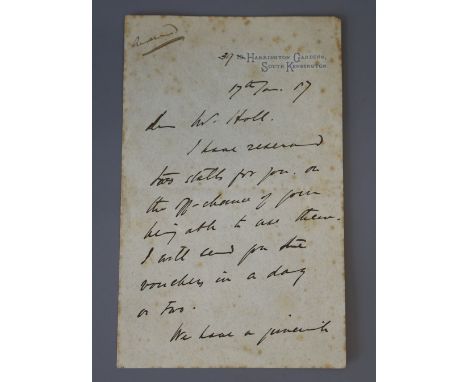 39 Harrington Gardens,
South Kensington.
17th Jan. 87
Dear Mr. Holl.
I have reserved
two stalls for you. on
the off-chance of your
being able to use them.
I will send you the
vouchers in a day
or two.
We have a juvenile